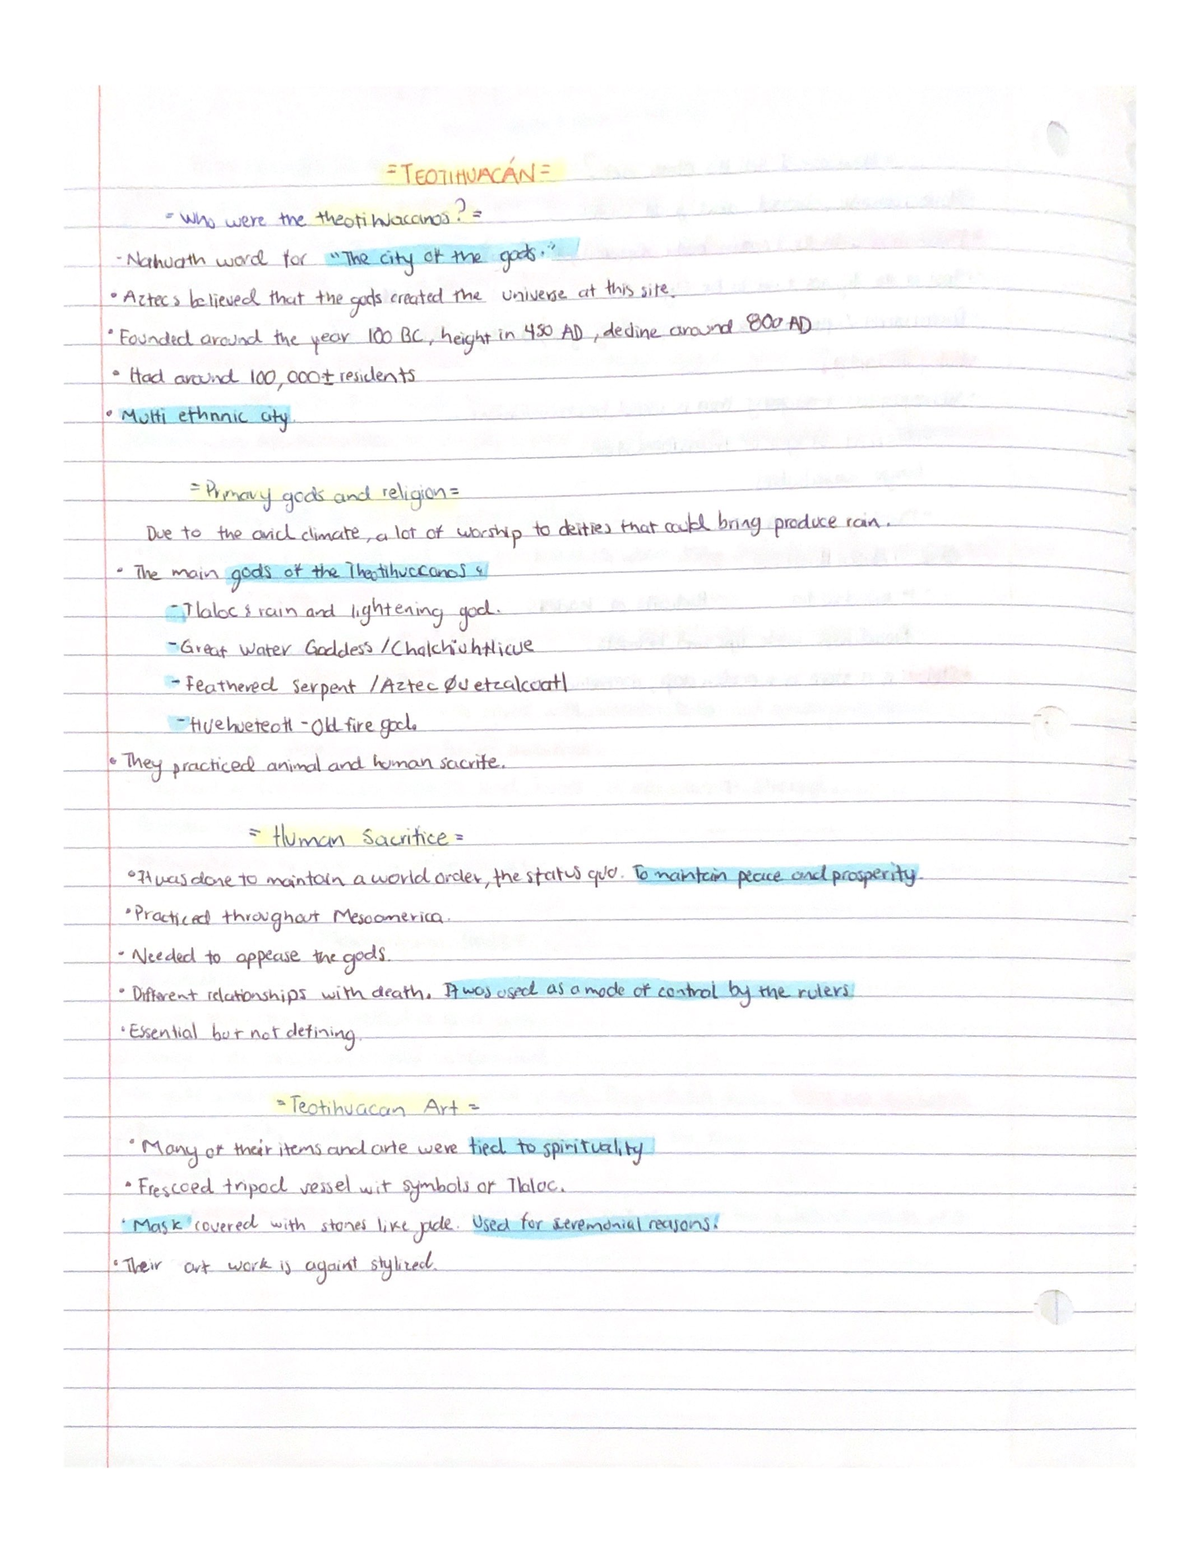 =TEOTIHUACÁN=
= Who were the theotihuacanos? =
- Nahuath word for "The city of the gods."
• Aztecs believed that the gods created the universe at this site.
• Founded around the year 100 BC, height in 450 AD, decline around 800 AD
• Had around 100,000± residents
• Multi ethnnic city.
= Primary gods and religion =
Due to the arid climate, a lot of worship to deities that could bring produce rain.
• The main gods of the Theotihuccanos:
- Tlaloc: rain and lightening god.
- Great Water Goddess / Chalchiuhtlicue
- Feathered Serpent / Aztec Quetzalcoatl
- Huehueteotl - Old fire god.
• They practiced animal and human sacrife.
= Human Sacrifice =
• It was done to maintain a world order, the status quo. To maintain peace and prosperity.
• Practiced throughout Mesoamerica.
• Needed to appease the gods.
• Different relationships with death. It was used as a mode of control by the rulers
• Essential but not defining.
= Teotihuacan Art =
• Many of their items and arte were tied to spirituality
• Frescoed tripod vessel wit symbols of Tlaloc.
• Mask covered with stones like jade. Used for seremonial reasons.
• Their art work is againt stylized.